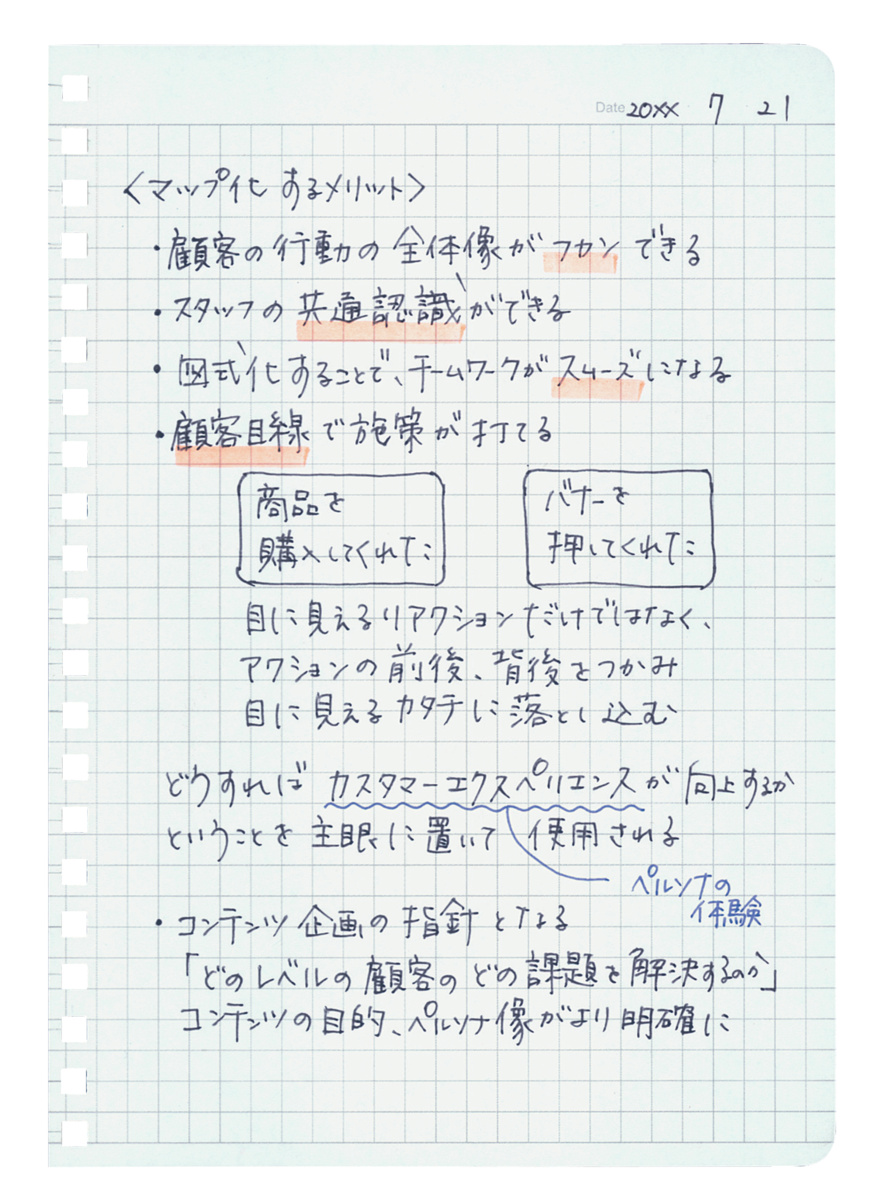 Date 20XX 7 21
〈マップ化するメリット〉
・顧客の行動の全体像がフカンできる
・スタッフの共通認識ができる
・図式化することで、チームワークがスムーズになる
・顧客目線で施策が打てる
商品を
購入してくれた
バナーを
押してくれた
目に見えるリアクションだけではなく、
アクションの前後、背後をつかみ
目に見えるカタチに落とし込む
どうすればカスタマーエクスペリエンスが向上するか
ということを主眼に置いて使用される
ペルソナの
体験
・コンテンツ企画の指針となる
「どのレベルの顧客のどの課題を解決するのか」
コンテンツの目的、ペルソナ像がより明確に